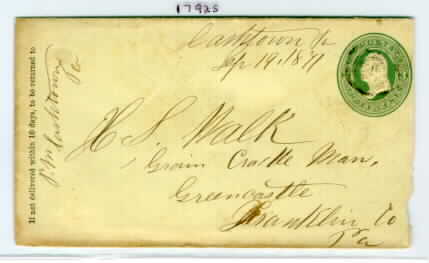 1792s
Cashtown Pa
Sep 19. 1871
If not delivered within 10 days, to be returned to
P.M. Cashtown
Pa
H. S. Walk
Grain Cradle Man.
Greencastle
Franklin Co
Pa